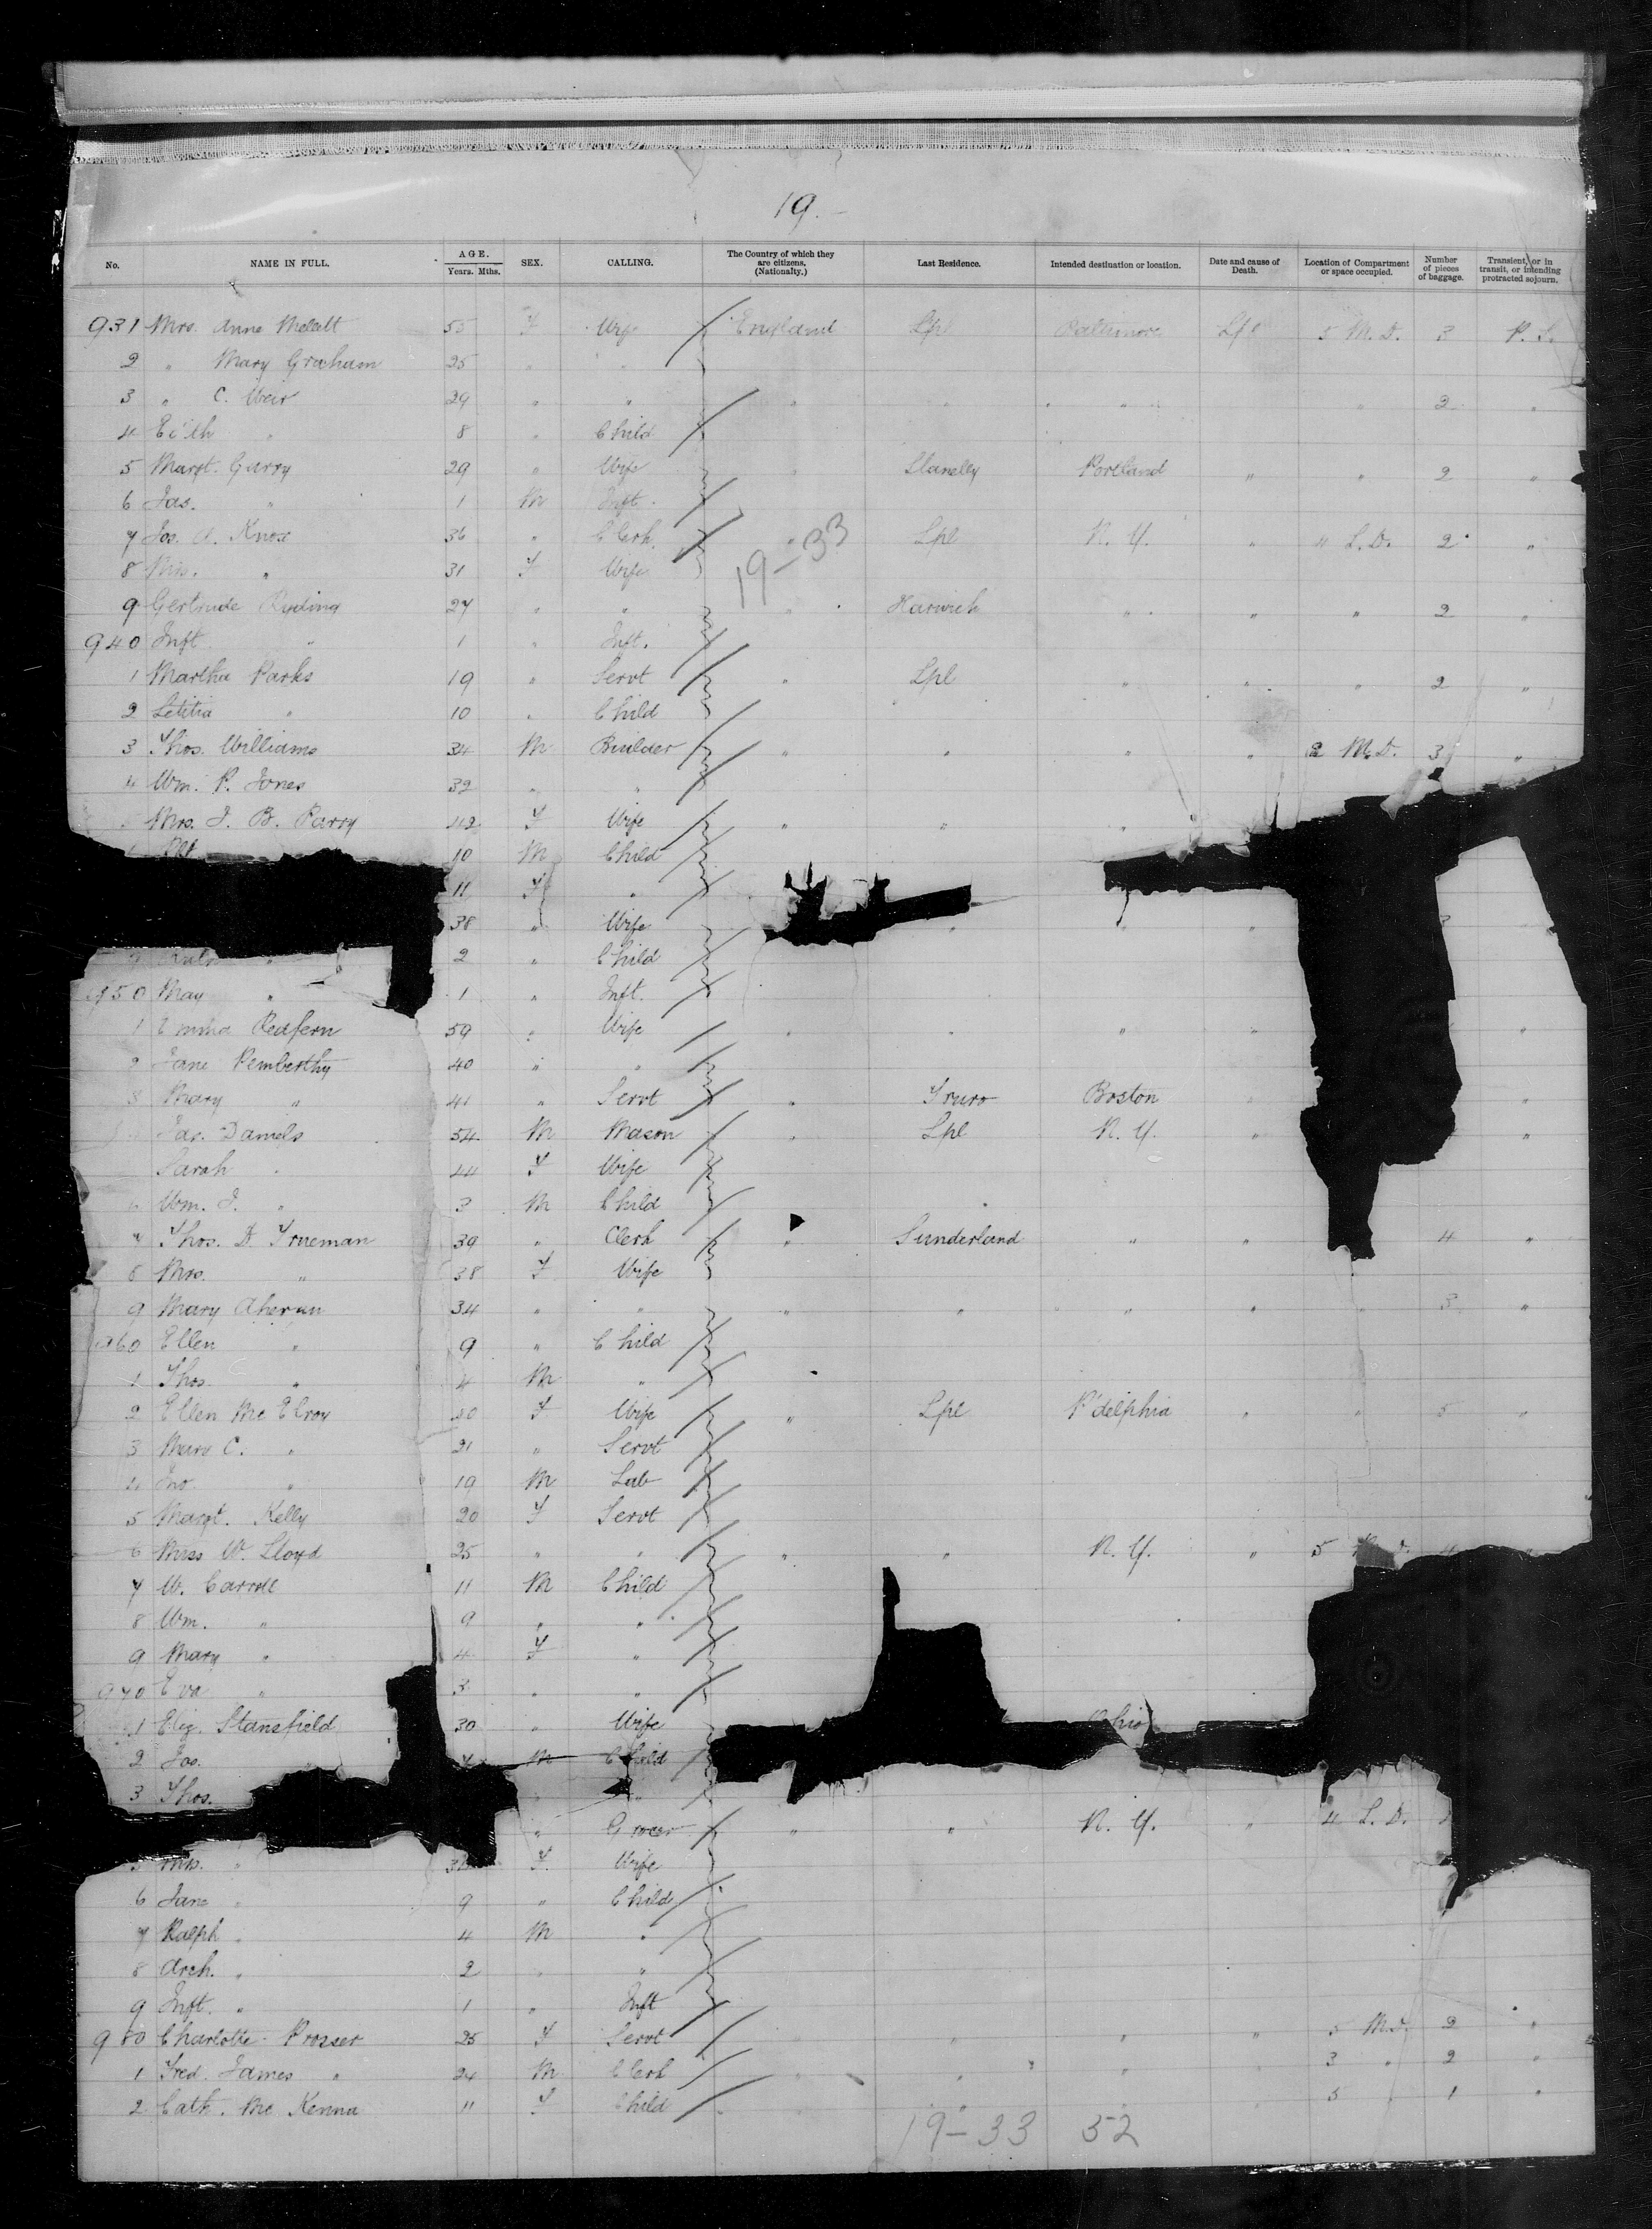 19.
No. NAME IN FULL. AGE. Years. Mths. SEX. CALLING. The Country of which they are citizens. (Nationalty.) Last Residence. Intended destination or location. Date and cause of Death. Location of Compartment or space occupied. Number of pieces of baggage. Transient, or in transit, or intending protracted sojourn.
931 Mrs. Anne 55 F Wife England Lpl Baltimore Lpl 5 M.D. 3 P.S.
2 " Mary Graham 25 " "
3 " C. Weir 29 " " " " " " 2 "
4 Edith " 8 " Child
5 Margt. Garry 29 " Wife " Llanelly Portland " " 2 "
6 Jas. " 1 M Inft.
7 Jos. A. Knox 36 " Clerk " Lpl N. Y. " " L.D. 2 "
8 Mrs. " 31 F Wife
19-33
9 Gertrude Ryding 27 " " " Harwich " " " 2 "
940 Inft " 1 " Inft.
1 Martha Parks 19 " Servt " Lpl " " " 2 "
2 Letitia " 10 " Child
3 Thos. Williams 34 M Builder " " " " 2 M.D. 3 "
4 Wm. P. Jones 32 " "
Mrs. J. B. Parry 42 F Wife " " "
10 M Child
11 F "
38 " Wife " " " 3
9 " 2 " Child
950 May " 1 " Inft.
1 Emma Redfern 59 " Wife " " " " "
2 Jane Pemberthy 40 " "
3 Mary " 41 " Servt " Truro Boston " "
Jas. Daniels 54 M Mason " Lpl N. Y. " "
Sarah " 44 F Wife
Wm. J. " 3 M Child
7 Thos. D. Trueman 39 " Clerk " Sunderland " " 4 "
8 Mrs. " 38 F Wife
9 Mary Ahern 34 " " " " " " " 3 "
960 Ellen " 9 " Child
1 Thos. " 4 M "
2 Ellen Mc Elroy 40 F Wife " Lpl P'delphia " " 5 "
3 Mary C. " 21 " Servt
4 Jno. " 19 M Lab
5 Margt. Kelly 20 F Servt
6 Miss W. Lloyd 25 " " " " N. Y. " 5 M.D. 4 "
7 W. Carroll 11 M Child
8 Wm. " 9 " "
9 Mary " 4 F "
970 Eva " 3 " "
1 Eliz. Stansfield 30 " Wife Ohio
2 Jos. M Child
3 Thos. " "
" Grocer " " N. Y. " 4 L.D.
5 Mrs. " F. Wife
6 Jane " 9 " Child
7 Ralph " 4 M "
8 Arch. " 2 " "
9 Inft. " 1 " Inft
980 Charlotte Prosser 25 F Servt " " " 5 M.D. 2 "
1 Fred. James " 24 M Clerk " " " 3 " 2 "
2 Cath. Mc Kenna 11 F Child " " 5 " 1 "
19-33 52